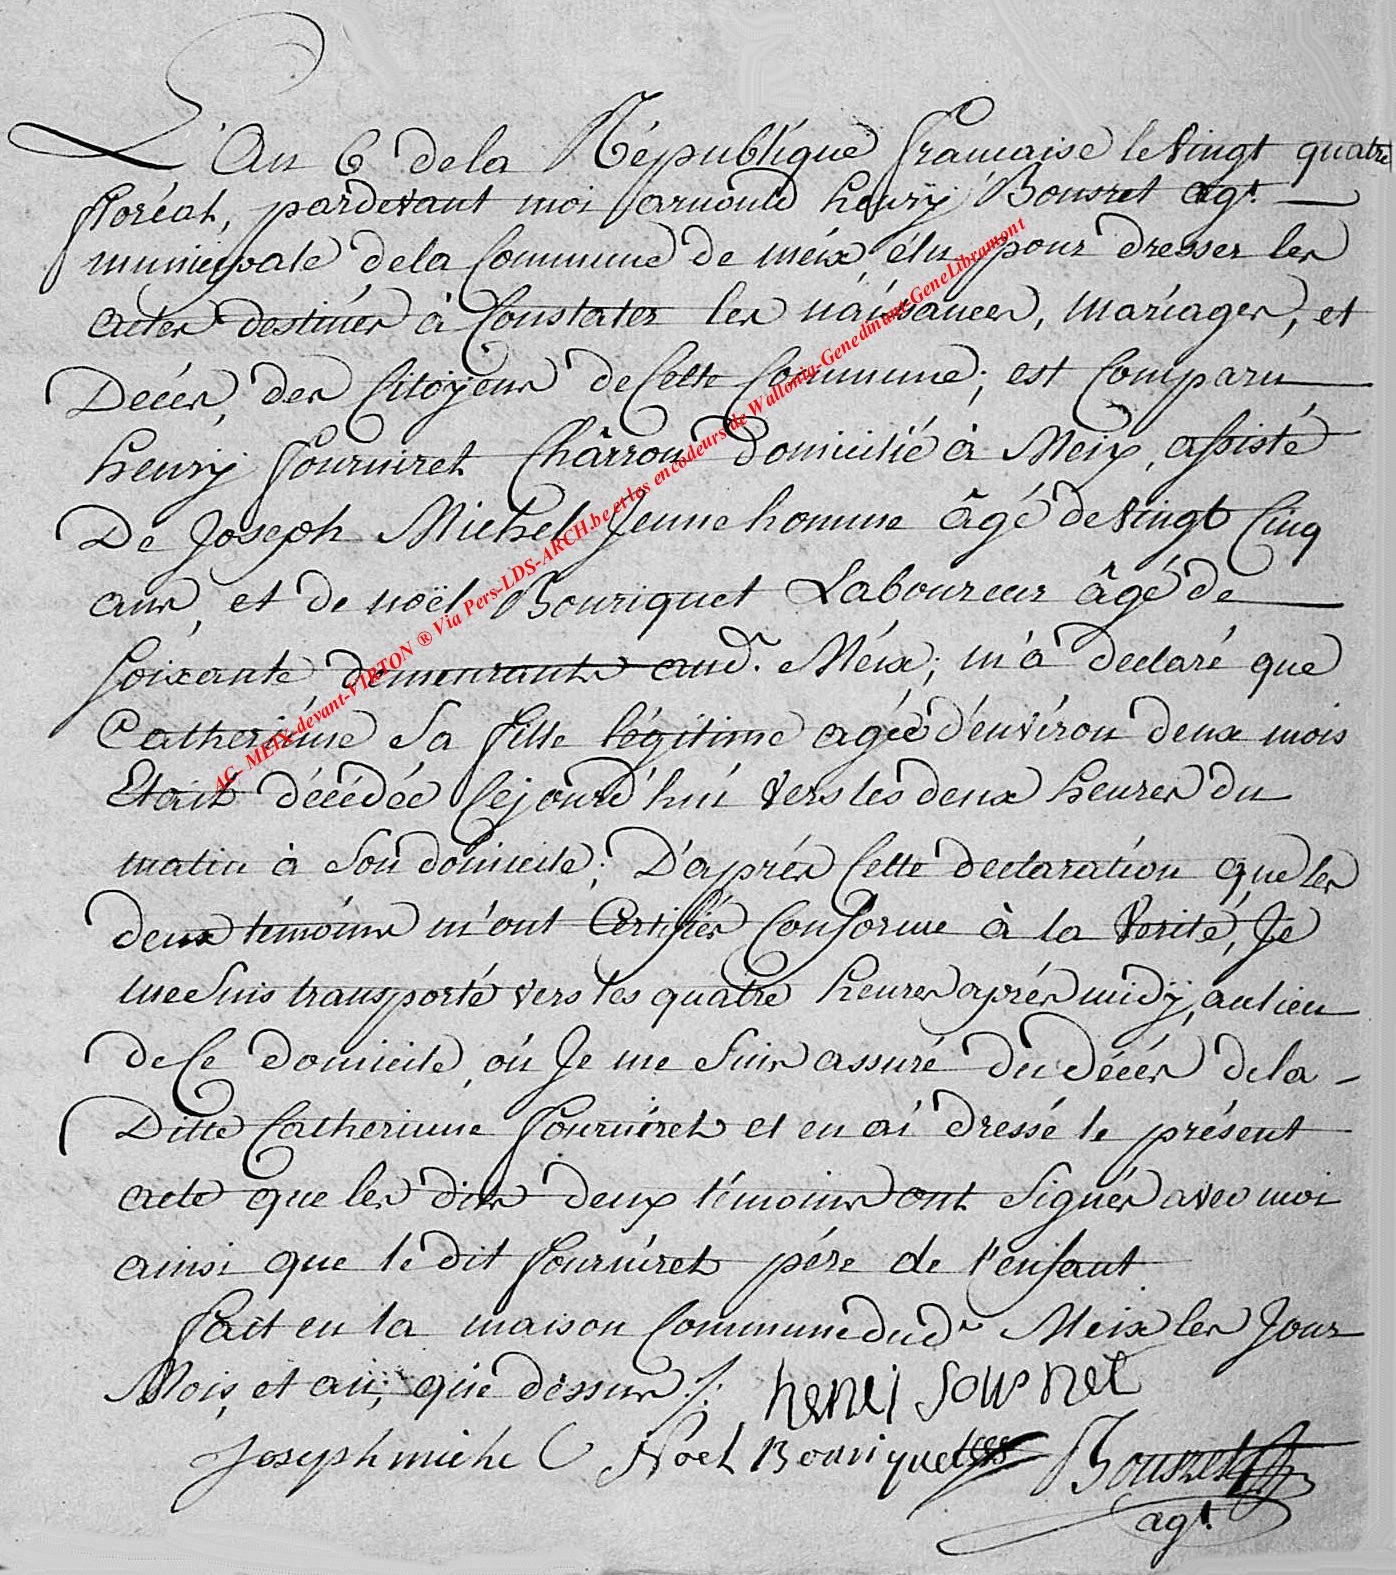 L'An 6 de la République française le vingt quatre
floréal, pardevant moi arnould henrÿ Bousret agt.
municipale de la Commune de méix élu pour dresser les
actes destinés à Constater les naissances, mariages, et
Decés, des Citoÿens de Cette Commune; est Comparu
henrÿ fourniret Chârron domicilié à Meix, assisté
De Joseph Michel Jeune homme âgé de vingt Cinq
ans, et de noël Bouriquet Laboureur âgé de
soixante, demeurants aud. Méix; m'a declaré que
Catherinne sa fille légitime agée d'environ deux mois
Etait décédée Cejourd'hui vers les deux heures du
matin à son domicile; D'aprés Cette declaration que les
deux temoins m'ont Certifiés Conforme à la verité, Je
me suis transporté vers les quatre heures aprés midÿ, au lieu
de Ce domicile, où Je me suis assuré du décés de la
Ditte Catherinne fourniret et en ai dressé le présent
acte que les dits deux témoins ont signés avec moi
ainsi que le dit fourniret pére de l'enfant
fait en la maison Commune dud. Meix les Jour
Mois, et an, que dessus ./.
henri fournet
Joseph michel Noel Bouriquet Bousret
agt.
AC- MEIX-devant-VIRTON ® Via Pers-LDS-ARCH.be et les encodeurs de Wallonia-Genedinant-GeneLibramont